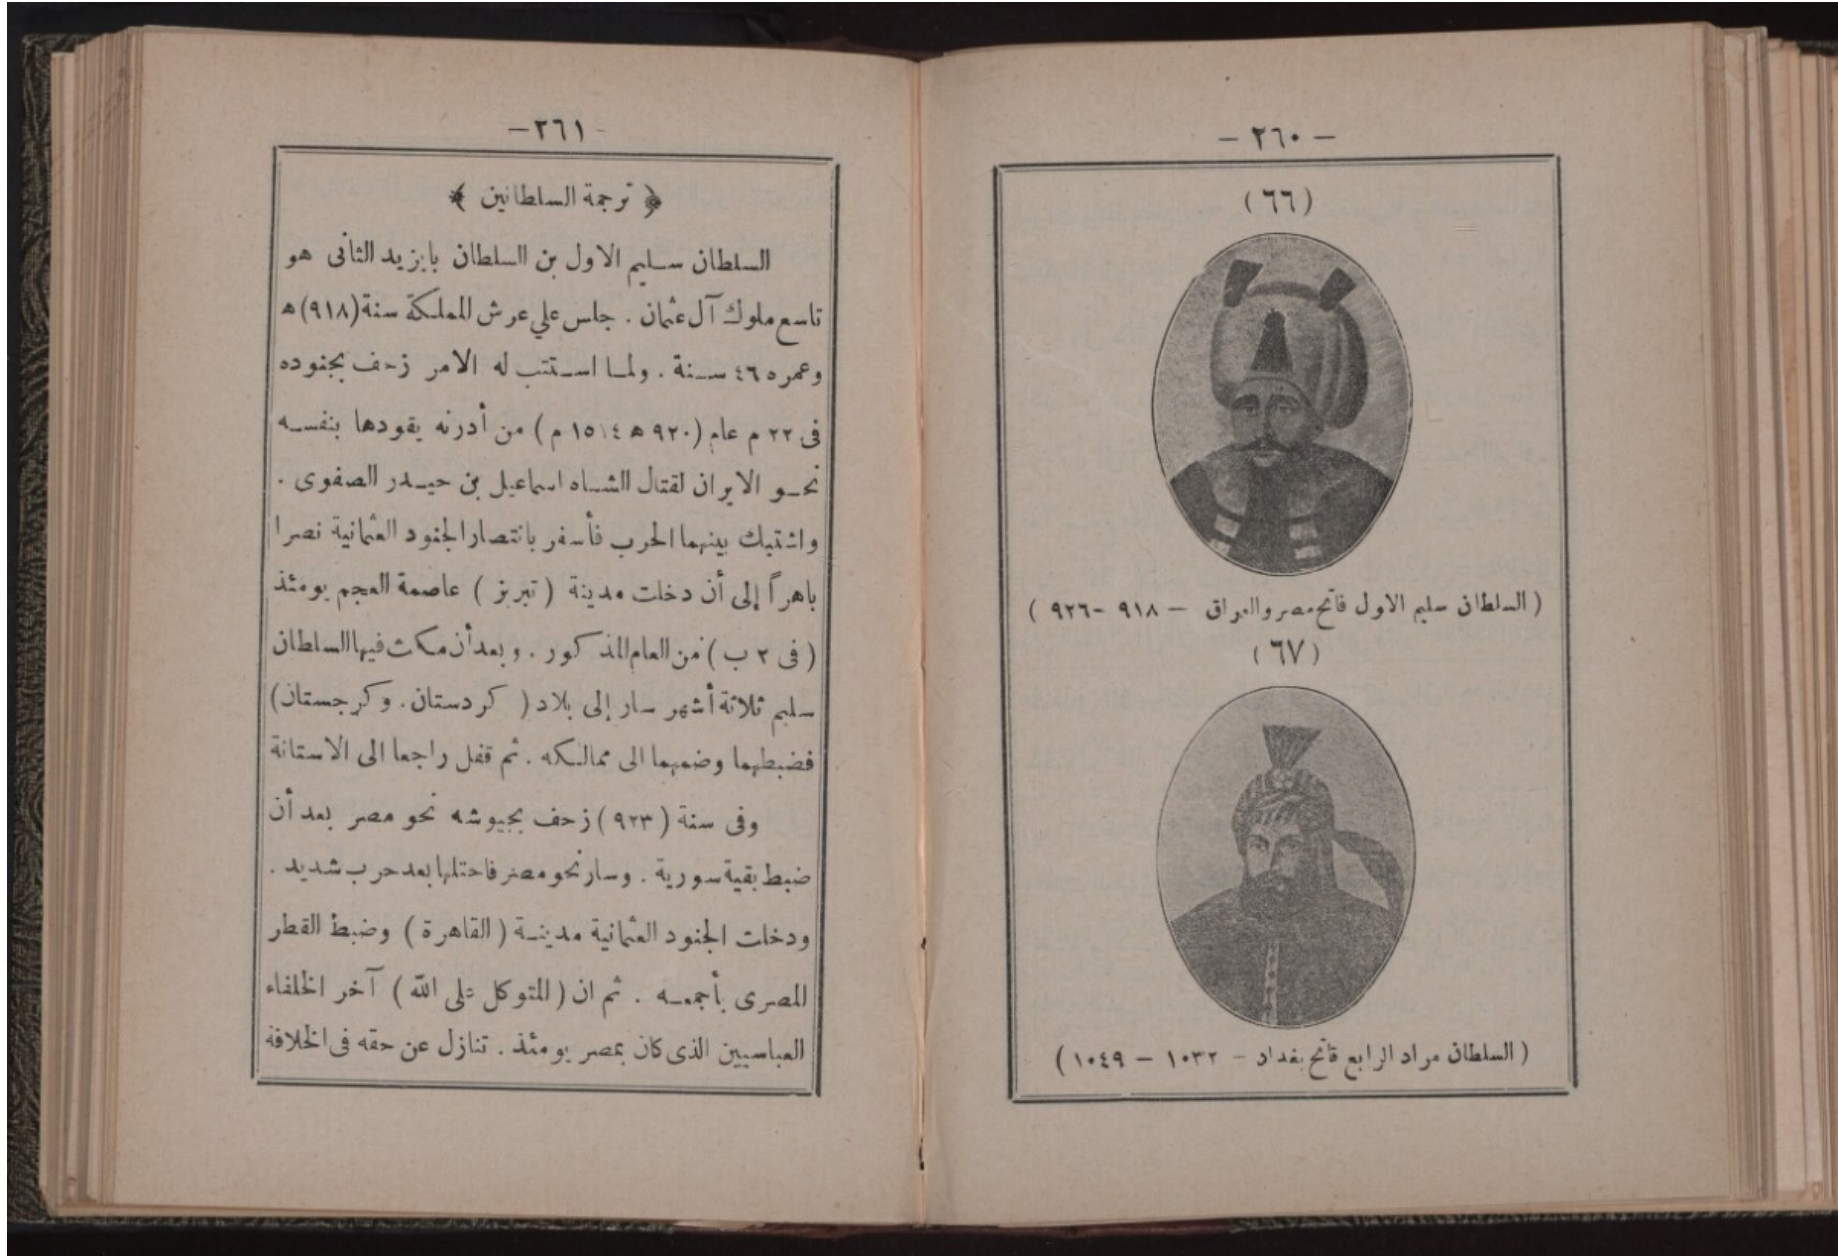 — ٢٦٠ —
(٦٦)
( السلطان سليم الاول فاتح مصر والعراق — ٩١٨ -٩٢٦ )
(٦٧)
( السلطان مراد الرابع فاتح بغداد — ١٠٣٢ — ١٠٤٩ )
- ٢٦١—
﴿ ترجمة السلطانين ﴾
السلطان سليم الاول بن السلطان بايزيد الثانى هو
تاسع ملوك آل عثمان . جلس علي عرش المملكة سنة (٩١٨) ه
وعمره ٤٦ سنة . ولما استتب له الامر زحف بجنوده
فى ٢٢ م عام (٩٢٠ ه ١٥١٤ م ) من أدرنه يقودها بنفسه
نحو الايران لقتال الشاه اسماعيل بن حيدر الصفوى .
واشتبك بينهما الحرب فأسفر بانتصار الجنود العثمانية نصرا
باهراً إلى أن دخلت مدينة ( تبريز ) عاصمة العجم يومئذ
( فى ٢ ب ) من العام المذكور . وبعد أن مكث فيها السلطان
سليم ثلاثة أشهر سار إلى بلاد ( كردستان . وكرجستان)
فضبطهما وضمهما الى ممالكه . ثم قفل راجعا الى الاستانة
وفى سنة ( ٩٢٣ ) زحف بجيوشه نحو مصر بعد أن
ضبط بقية سورية . وسار نحو مصر فاحتلها بعد حرب شديد .
ودخلت الجنود العثمانية مدينة ( القاهرة ) وضبط القطر
المصرى بأجمعه . ثم ان ( المتوكل على الله ) آخر الخلفاء
العباسيين الذى كان بمصر يومئذ . تنازل عن حقه فى الخلافة